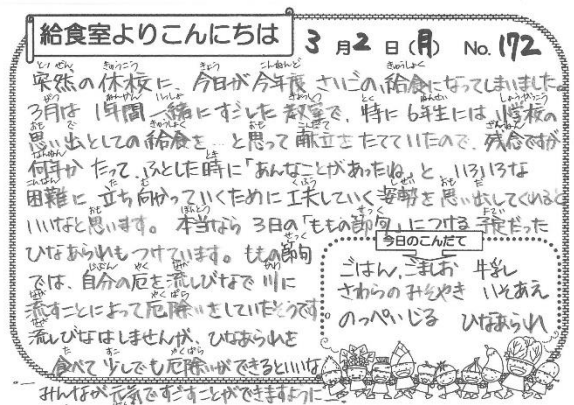 給食室よりこんにちは
3月2日(月) No.172
突然の休校に、今日が今年度さいごの給食になってしまいました。
3月は1年間一緒にすごした教室で、特に6年生には、小学校の
思い出としての給食を…と思って献立をたてていたので、残念ですが
何年かたって、ふとした時に「あんなことがあったね」と、いろいろな
困難に立ち向かっていくために工夫していく姿勢を思い出してくれると
いいなと思います。本当なら3日の「ももの節句」につける予定だった
ひなあられもつけています。ももの節句
では、自分の厄を流しびなで川に
流すことによって厄除いをしていたそうです
流しびなはしませんが、ひなあられを
食べて少しでも厄除いができるといいな
みんなが元気ですごすことができますように
今日のこんだて
ごはん、ごましお 牛乳
さわらのみそやき いそあえ
のっぺいじる ひなあられ